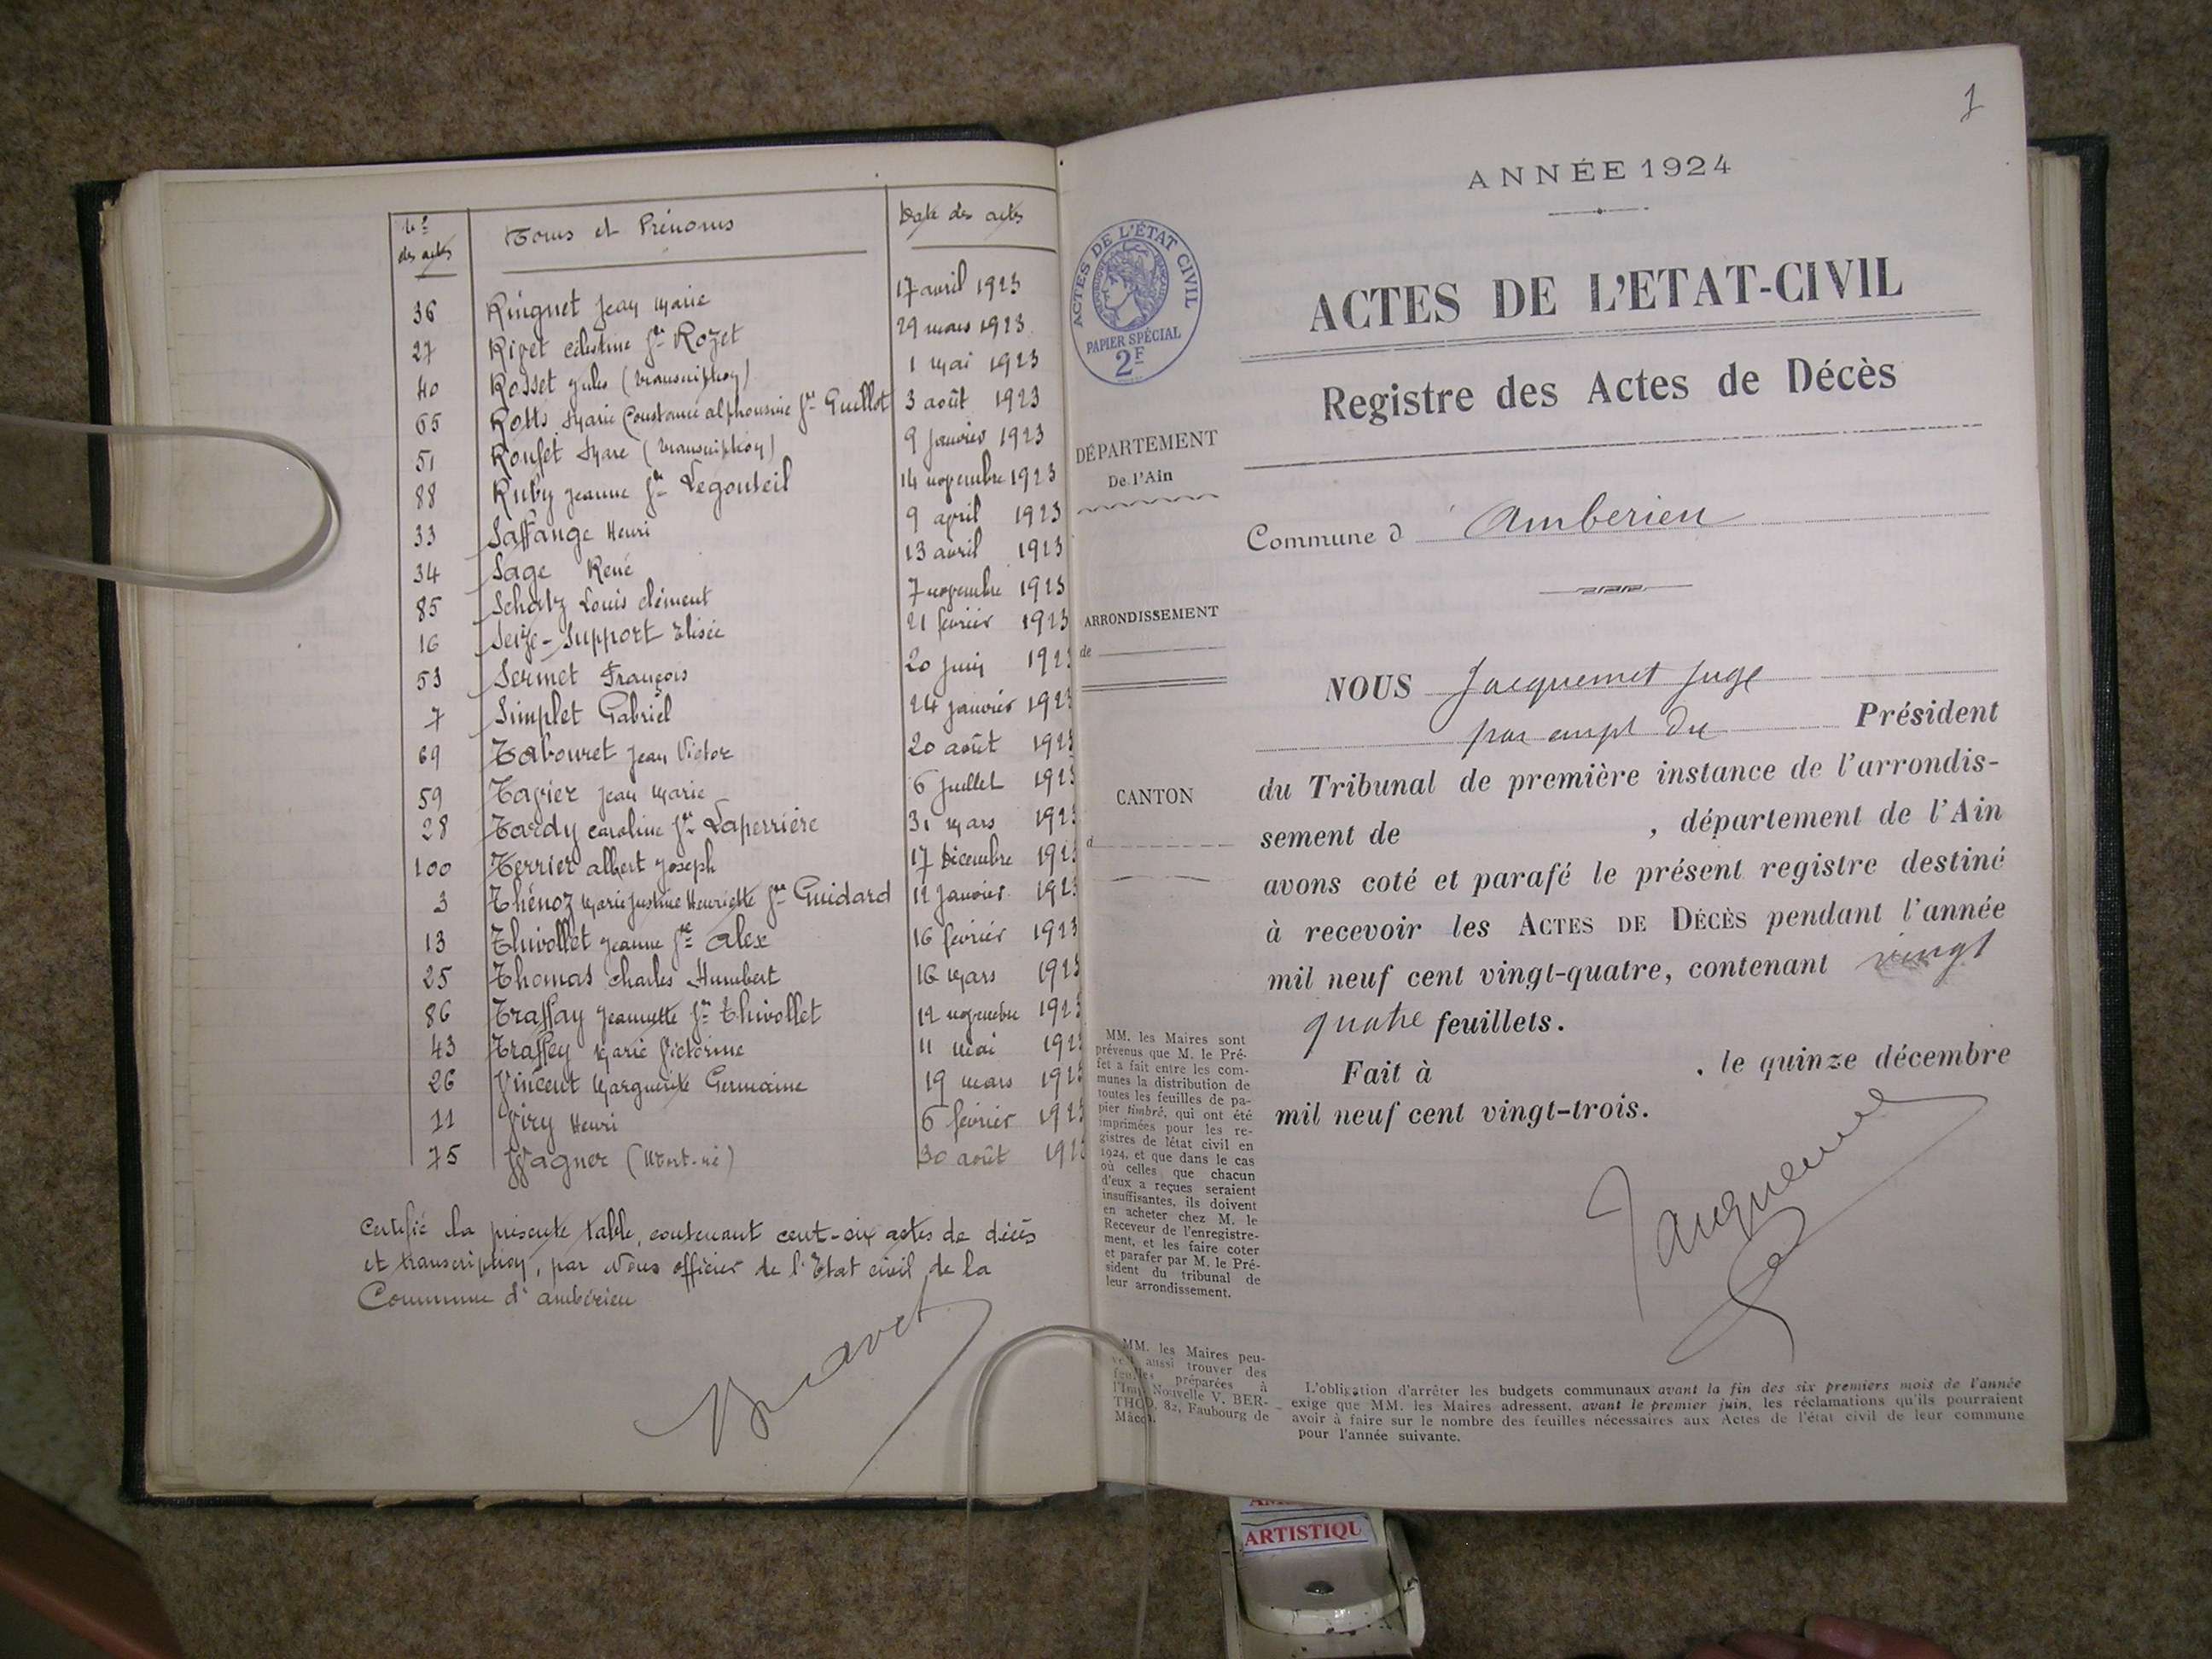 Nos des actes | Noms et Prénoms | Date des actes
36 | Ringuet Jean Marie | 17 avril 1923
27 | Rivet Célestine fe Rozet | 29 mars 1923
40 | Rosset Jules (transcription) | 1 mai 1923
65 | Rotts Marie Constance alphonsine fe Guillot | 3 août 1923
51 | Rouset Marc (transcription) | 9 janvier 1923
88 | Ruby Jeanne fe Legouteil | 14 novembre 1923
33 | Saffange Henri | 9 avril 1923
34 | Sage René | 13 avril 1923
85 | Schatz Louis clément | 7 novembre 1923
16 | Seize-Support Elisée | 21 février 1923
53 | Sermet François | 20 juin 192
7 | Simplet Gabriel | 24 janvier 192
69 | Tabouret Jean Victor | 20 août 192
59 | Tavier Jean Marie | 6 Juillet 192
28 | Tardy Caroline fe Laperrière | 31 mars 192
100 | Terrier albert Joseph | 17 Décembre 192
3 | Thénoz Marie Justine Henriette fe Guidard | 12 janvier 192
13 | Thivollet Jeanne fe Alex | 16 février 1923
25 | Thomas Charles Humbert | 16 mars 1923
86 | Traffay Jeannette fe Thivollet | 12 novembre 192
43 | Traffey Marie Victorine | 11 mai 192
26 | Vincent Marguerite Germaine | 19 mars 192
11 | Viry Henri | 6 février 192
75 | Wagner (Mort-né) | 30 août 192
Certifié la présente table, contenant cent-six actes de décès
et transcription, par Nous officier de l'Etat civil de la
Commune d'ambérieu
1
ANNÉE 1924
ACTES DE L'ÉTAT CIVIL
PAPIER SPÉCIAL
2F
ACTES DE L'ETAT-CIVIL
Registre des Actes de Décès
DÉPARTEMENT
De l'Ain
Commune d Amberieu
ARRONDISSEMENT
de
CANTON
d
NOUS Jacquemet Juge
par empt du Président
du Tribunal de première instance de l'arrondis-
sement de , département de l'Ain
avons coté et parafé le présent registre destiné
à recevoir les ACTES DE DÉCÈS pendant l'année
mil neuf cent vingt-quatre, contenant vingt
quatre feuillets.
Fait à , le quinze décembre
mil neuf cent vingt-trois.
Jacquemet
MM. les Maires sont
prévenus que M. le Pré-
fet a fait entre les com-
munes la distribution de
toutes les feuilles de pa-
pier timbré, qui ont été
imprimées pour les re-
gistres de l'état civil en
1924, et que dans le cas
où celles que chacun
d'eux a reçues seraient
insuffisantes, ils doivent
en acheter chez M. le
Receveur de l'enregistre-
ment, et les faire coter
et parafer par M. le Pré-
sident du tribunal de
leur arrondissement.
MM. les Maires peu-
vent aussi trouver des
feuilles préparées à
l'Imp. Nouvelle V. BER-
THOD, 82, Faubourg de
Mâcon.
L'obligation d'arrêter les budgets communaux avant la fin des six premiers mois de l'année
exige que MM. les Maires adressent, avant le premier juin, les réclamations qu'ils pourraient
avoir à faire sur le nombre des feuilles nécessaires aux Actes de l'état civil de leur commune
pour l'année suivante.
ARTISTIQU